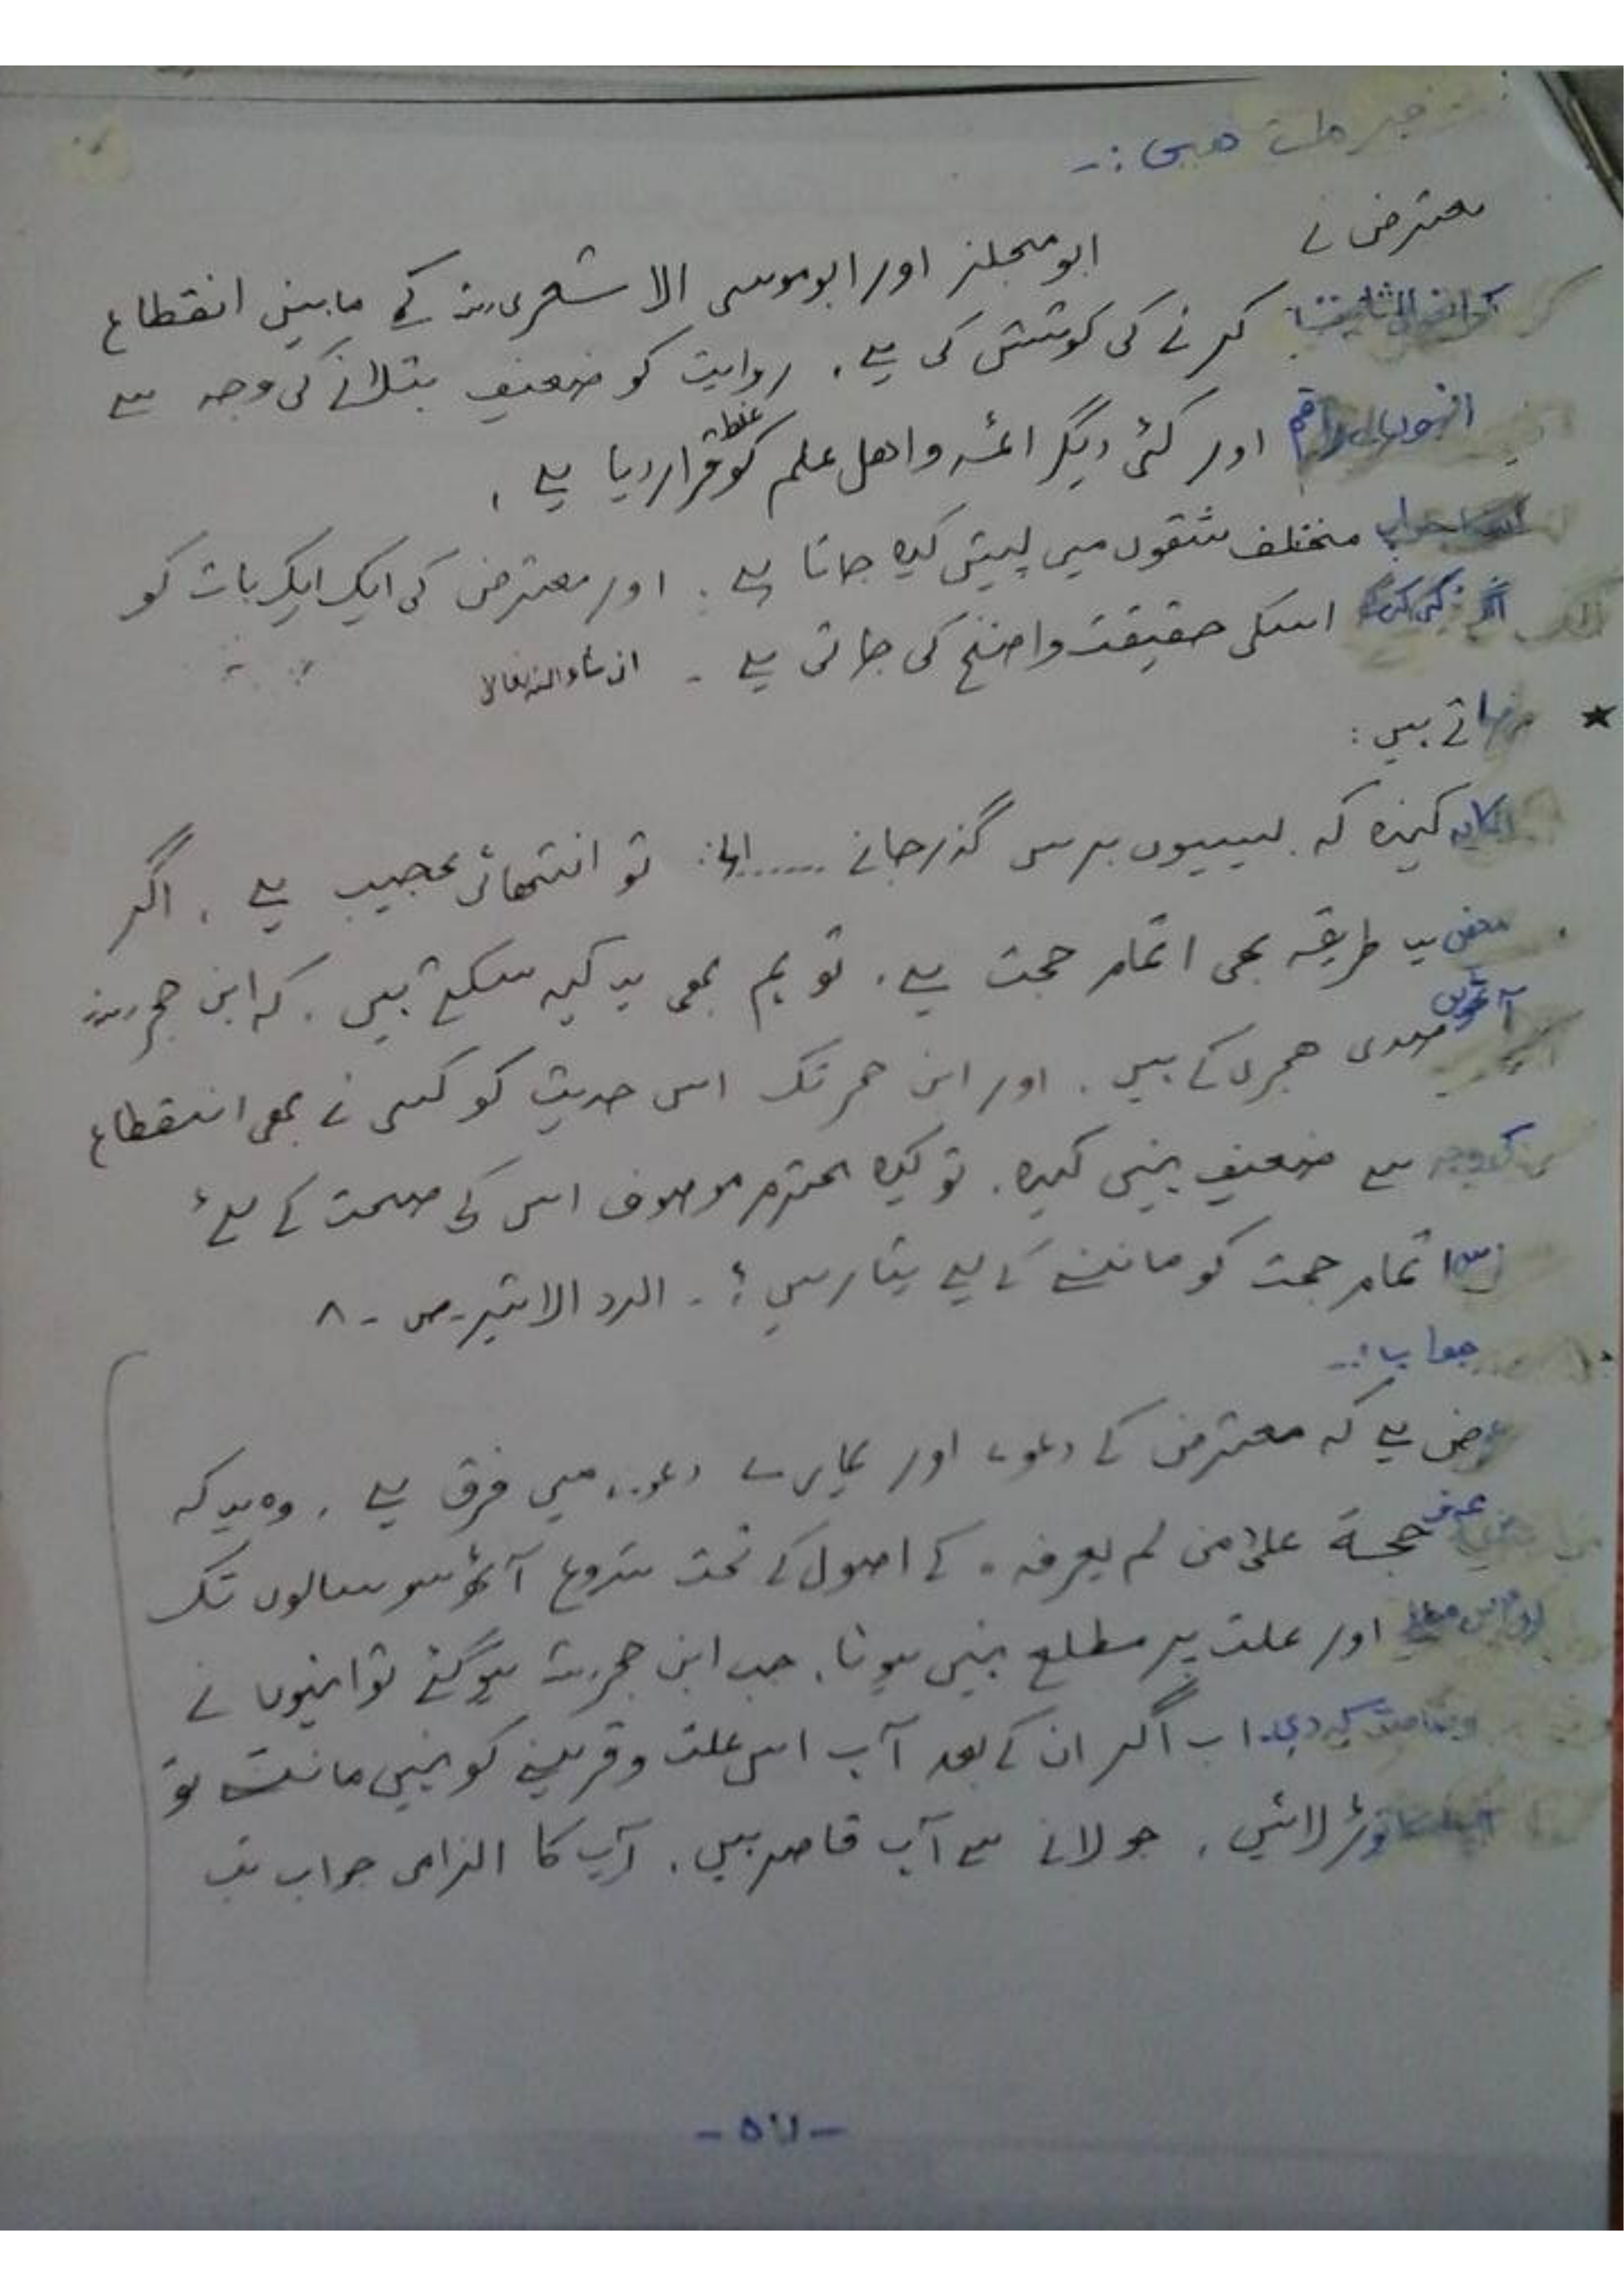 معترض نے
ابو مجلز اور ابو موسی الاشعری رضہ کے مابین انقطاع
کرنے کی کوشش کی ہے. روایت کو ضعیف بتلانے کی وجہ سے
انہوں راقم اور کئی دیگر ائمہ و اھل علم کو غلط قرار دیا ہے.
مختلف شقوں میں پیش کیا جاتا ہے. اور معترض کی ایک ایک بات کو
اسکی حقیقت واضح کی جاتی ہے - ان شاء اللہ تعالی
★ فرماتے ہیں:
کہنا کہ بیسیوں برس گذر جانے ..... الخ: تو انتھائی عجیب ہے. اگر
محض یہ طریقہ بھی اتمام حجت ہے. تو ہم بھی یہ کہہ سکتے ہیں. کہ ابن حجر رحہ
آٹھویں صدی ھجری کے ہیں. اور ابن حجر تک اس حدیث کو کسی نے بھی انقطاع
کی وجہ سے ضعیف نہیں کہا. تو کیا محترم موصوف اس کی صحت کے لئے
اس اتمام حجت کو ماننے کے لیے تیار ہیں؟ - الرد الاثیر - ص - ۸
جواب:-
عرض ہے کہ معترض کے دعوے اور ہمارے دعوے میں فرق ہے. وہ یہ کہ
عرف حجة علی من لم یعرف. کے اصول کے تحت شروع آٹھ سو سالوں تک
اور علت پر مطلع نہیں ہوتا. جب ابن حجر رحہ ہو گئے تو انہوں نے
وضاحت کر دی. اب اگر ان کے بعد آپ اس علت و قرینے کو نہیں مانتے تو
توڑ لائیں. جو لانے سے آپ قاصر ہیں. آپ کا الزامی جواب تب